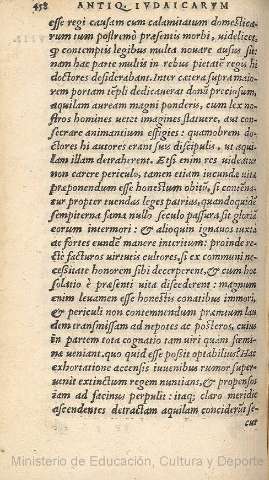 458 ANTIQ. IVDAICARVM
esse regi causam cum calamitatum domestica-
rum tum postremò præsentis morbi, videlicet
q contemptis legibus multa nouare ausus sit:
nam hac parte multū in rebus pietatē regū hi
doctores desiderabant. Inter cætera supra maio-
rem portam tēpli dedicauerat donū preciosum,
aquilam auream magni ponderis, cum lex no-
stros homines vetet imagines statuere, aut con
secrare animantium effigies: quamobrem do-
ctores hi autores erant suis discipulis, ut aqui
lam illam detraherent. Etsi enim res videatur
non carere periculo, tamen etiam iucunda vitæ
præponendum esse honestum obitū, si conten̄a
tur propter tuendas leges patrias, quandoquidē
sempiterna fama nullo seculo passura sit gloriā
eorum intermori: & alioquin ignauos iuxta
ac fortes eundē manere interitum: proinde re-
ctè facturos virtutis cultores, si ex communi ne
cessitate honorem sibi decerperent, & cum hoc
solatio è præsenti vita discederent: magnum
enim leuamen esse honestis conatibus immori,
& periculi non contemnendum præmium lau
dem transmissam ad nepotes ac posteros, cuius
in partem tota cognatio tam uiri quam fœmi-
næ veniant, quo quid esse possit optabilius? Hac
exhortatione accensis iuuenibus rumor super-
uenit extinctum regem nuntians, & propensos
iam ad facinus perpulit: itaq; claro meridie
ascendentes detractam aquilam considerūt se-
cur
Ministerio de Educación, Cultura y Deporte